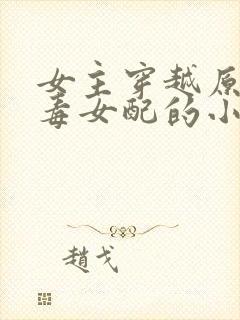 女主穿越原
毒女配的小
趙戈